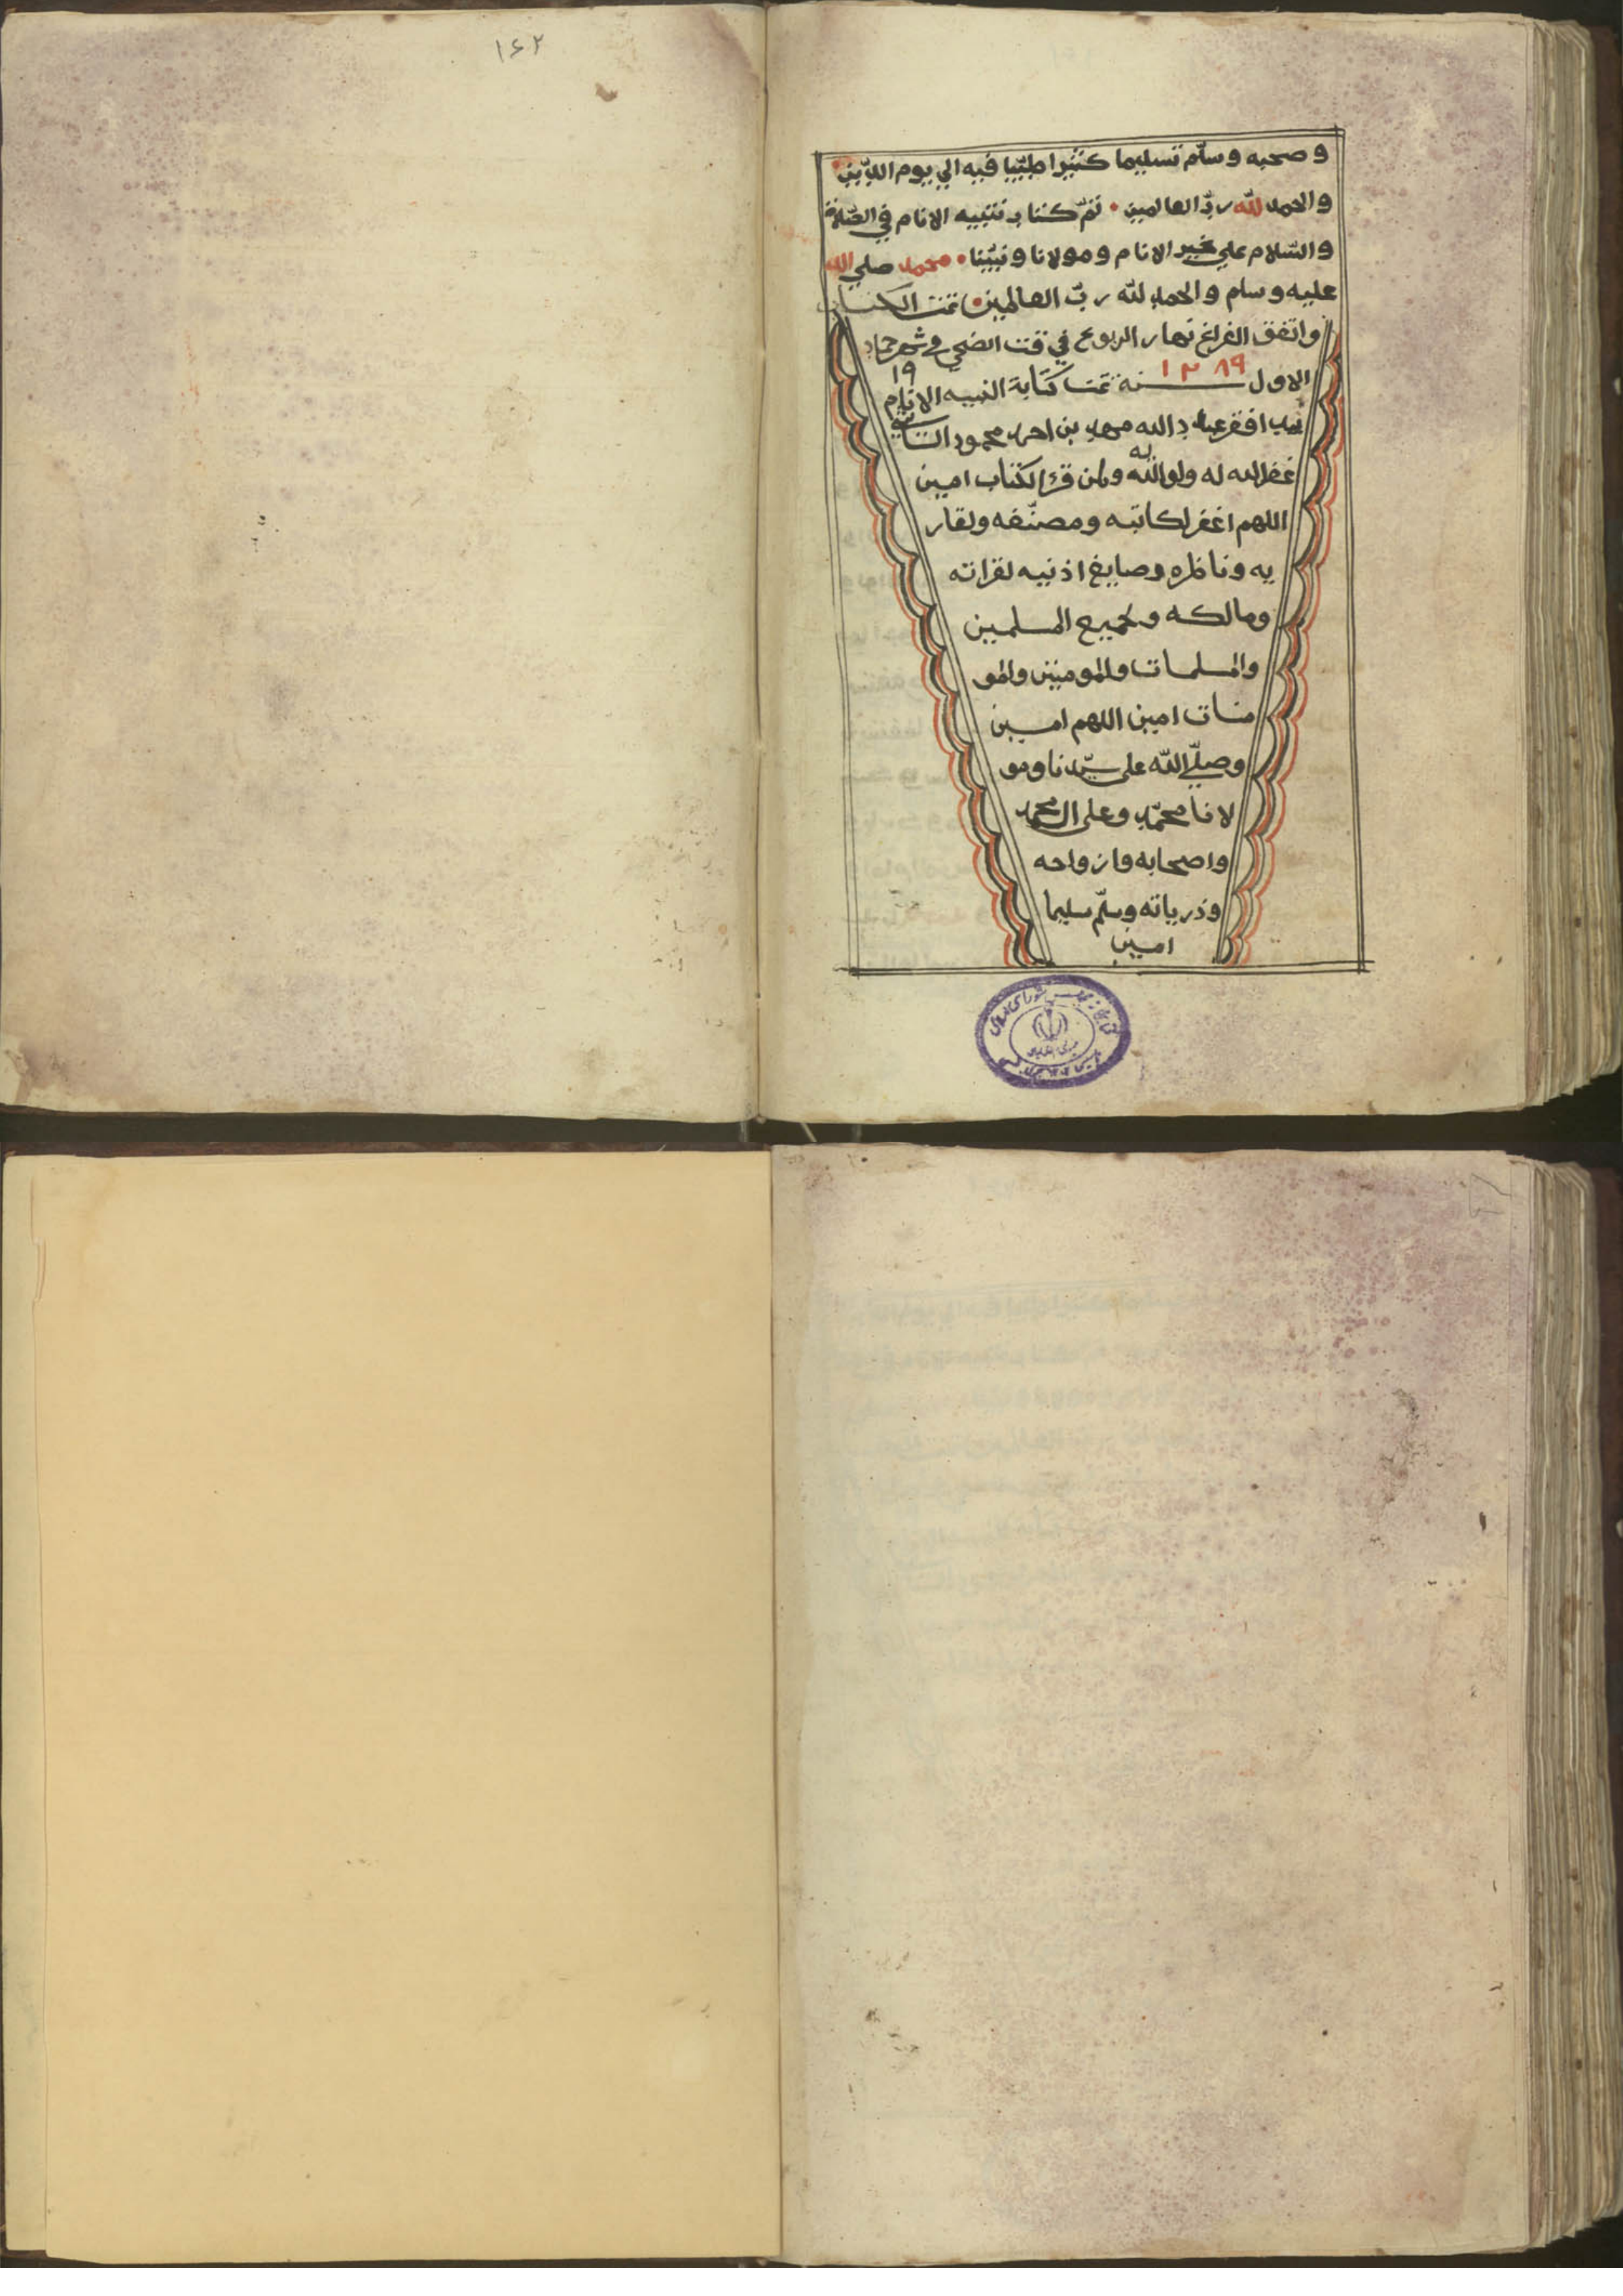 ۱۶۲
و صحبه و سلّم تسليما كثيرا طيّبا فيه الي يوم الدّين
والحمد لله ربّ العالمين • تمّ كتاب تنبيه الانام في الصّلاة
والسّلام علي خير الانام و مولانا و نبيّنا • محمد صلي الله
عليه و سلم والحمد لله ربّ العالمين • تمت الكتاب
واتفق الفراغ نهار الربوع في قت الضحي في شهر جماد
١٩
الاول سنة ١٢٨٩ تمت كتابة التنبيه الانام
بيد افقر عباد الله محمد بن احمد محمود
غفر الله له ولوالديه ولمن قرا الكتاب امين
اللهم اغفر لكاتبه ومصنّفه ولقار
يه و ناظره وصايغ اذنيه لقراته
ومالكه ولجميع المسلمين
والمسلمات والمومنين والمو
منات امين اللهم امين
وصلّي الله على سيّدنا ومو
لانا محمّد وعلى ال محمد
واصحابه وازواجه
وذرياته وسلّم سليما
امين
كتابخانه مجلس شورای اسلامی